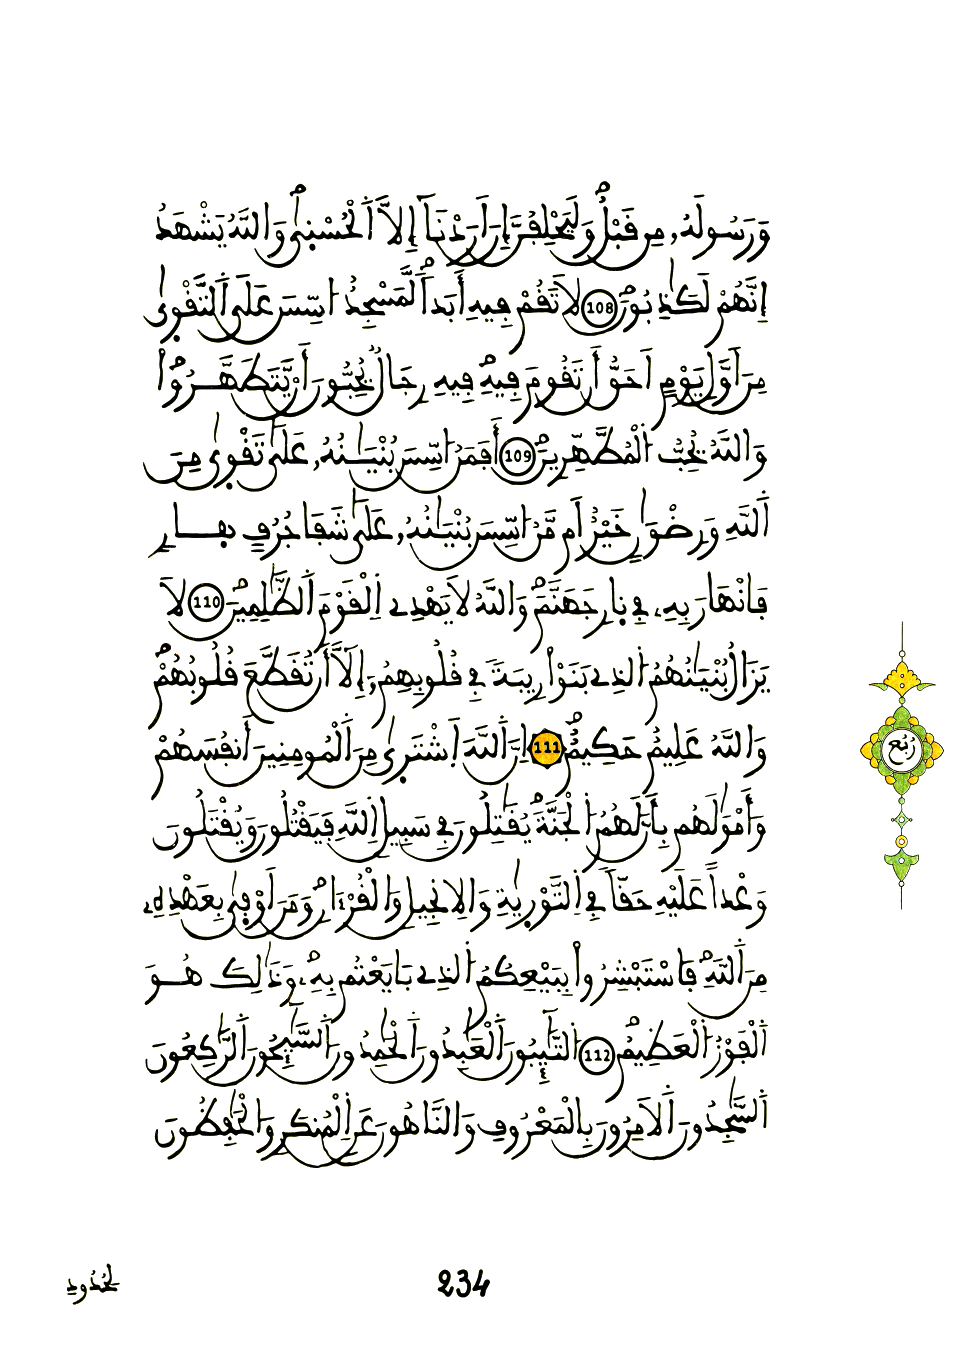 وَرَسُولَهُۥ مِن قَبْلُ وَلَيَحْلِفُنَّ إِنْ أَرَدْنَآ إِلَّا اَ۬لْحُسْن۪يٰ وَاللَّهُ يَشْهَدُ
إِنَّهُمْ لَكَٰذِبُونَۖ 108 لَا تَقُمْ فِيهِ أَبَداٗ لَّمَسْجِدٌ ا۟سِّسَ عَلَي اَ۬لتَّقْو۪يٰ
مِنَ اَوَّلِ يَوْمٍ اَحَقُّ أَن تَقُومَ فِيهِۖ فِيهِ رِجَالٞ يُحِبُّونَ أَنْ يَّتَطَهَّرُواْۖ
وَاللَّهُ يُحِبُّ اُ۬لْمُطَّهِّرِينَۖ 109 أَفَمَنُ ا۟سِّسَ بُنْيَٰنُهُۥ عَلَيٰ تَقْو۪يٰ مِنَ
اَ۬للَّهِ وَرِضْوَٰنٍ خَيْرٌ أَم مَّنُ ا۟سِّسَ بُنْيَٰنُهُۥ عَلَيٰ شَفَا جُرُفٍ ه۪ارٖ
فَانْهَارَ بِهِۦ فِي ن۪ارِ جَهَنَّمَۖ وَاللَّهُ لَا يَهْدِے اِ۬لْقَوْمَ اَ۬لظَّٰلِمِينَۖ 110 لَا
يَزَالُ بُنْيَٰنُهُمُ اُ۬لذِے بَنَوْاْ رِيبَةٗ فِي قُلُوبِهِمُۥٓ إِلَّآ أَن تُقَطَّعَ قُلُوبُهُمْۖ
وَاللَّهُ عَلِيمٌ حَكِيمٌۖ 111 اِنَّ اَ۬للَّهَ اَ۪شْتَر۪يٰ مِنَ اَ۬لْمُومِنِينَ أَنفُسَهُمْ
وَأَمْوَٰلَهُم بِأَنَّ لَهُمُ اُ۬لْجَنَّةَۖ يُقَٰتِلُونَ فِي سَبِيلِ اِ۬للَّهِ فَيَقْتُلُونَ وَيُقْتَلُونَ
وَعْداً عَلَيْهِ حَقّاٗ فِي اِ۬لتَّوْر۪يٰةِ وَالِانجِيلِ وَالْقُرْءَانِۖ وَمَنَ اَوْف۪يٰ بِعَهْدِهِۦ
مِنَ اَ۬للَّهِۖ فَاسْتَبْشِرُواْ بِبَيْعِكُمُ اُ۬لذِے بَايَعْتُم بِهِۦۖ وَذَٰلِكَ هُوَ
اَ۬لْفَوْزُ اُ۬لْعَظِيمُۖ 112 اُ۬لتَّٰٓئِبُونَ اَ۬لْعَٰبِدُونَ اَ۬لْحَٰمِدُونَ اَ۬لسَّٰٓئِحُونَ اَ۬لرَّٰكِعُونَ
اَ۬لسَّٰجِدُونَ اَ۬لَامِرُونَ بِالْمَعْرُوفِ وَالنَّاهُونَ عَنِ اِ۬لْمُنكَرِ وَالْحَٰفِظُونَ
رُبُع
لِحُدُودِ
234